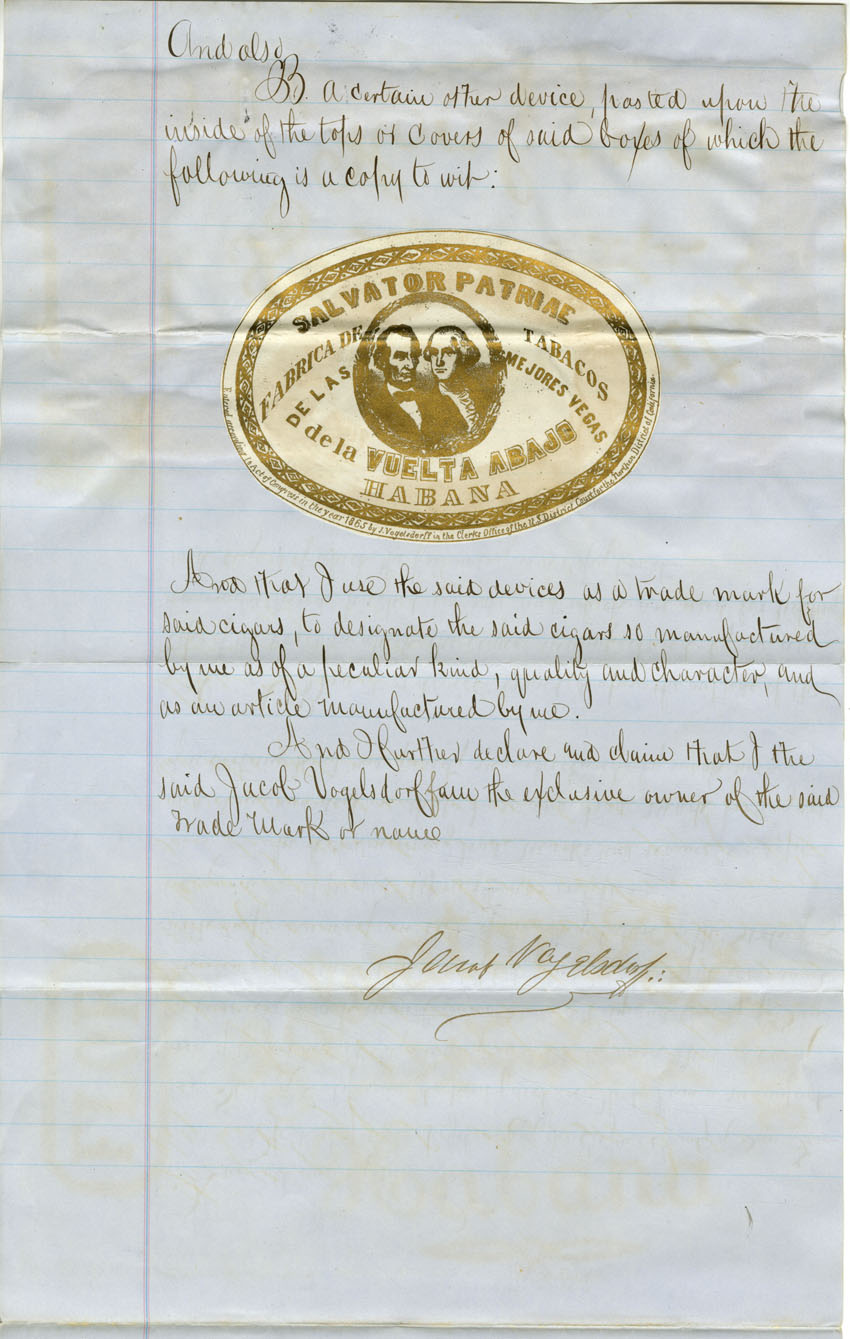 And also
B. a certain other device, pasted upon the
inside of the tops or covers of said boxes of which the
following is a copy to wit:
SALVATOR PATRIAE
FABRICA DE TABACOS
DE LAS MEJORES VEGAS
de la VUELTA ABAJO
HABANA
Entered according to Act of Congress in the year 1865 by J. Vogelsdorff in the Clerks Office of the U.S. District Court for the Northern District of California.
And that I use the said devices as a trade mark for
said cigars, to designate the said cigars so manufactured
by me as of a peculiar kind, quality and character, and
as an article manufactured by me.
And I further declare and claim that I the
said Jacob Vogelsdorff am the exclusive owner of the said
trade mark or name
Jacob Vogelsdorff